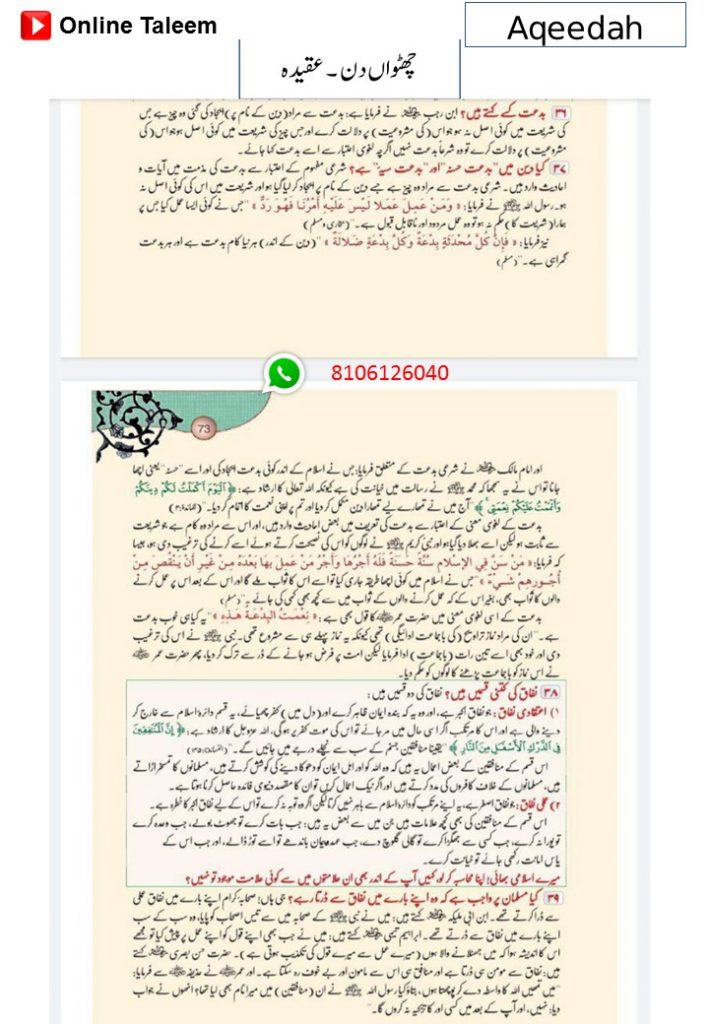 Online Taleem
Aqeedah
چھٹواں دن ۔ عقیدہ
۳۶ بدعت کسے کہتے ہیں؟ ابن رجب نے فرمایا ہے: بدعت سے مراد (دین کے نام پر) ایجاد کی گئی وہ چیز ہے جس
کی شریعت میں کوئی اصل نہ ہو جو اس (کی مشروعیت) پر دلالت کرے اور جس چیز کی شریعت میں کوئی اصل ہو جو اس (کی
مشروعیت) پر دلالت کرے تو وہ شرعاً بدعت نہیں اگرچہ لغوی اعتبار سے اسے بدعت کہا جائے۔
۳۷ کیا دین میں "بدعت حسنہ" اور "بدعت سیئہ" ہے؟ شرعی مفہوم کے اعتبار سے بدعت کی مذمت میں آیات و
احادیث وارد ہیں۔ شرعی بدعت سے مراد وہ چیز ہے جسے دین کے نام پر ایجاد کر لیا گیا ہو اور شریعت میں اس کی کوئی اصل نہ
ہو۔ رسول اللہ ﷺ نے فرمایا: « وَمَنْ عَمِلَ عَمَلًا لَيْسَ عَلَيْهِ أَمْرُنَا فَهُوَ رَدٌّ » "جس نے کوئی ایسا عمل کیا جس پر
ہمارا (شریعت کا) حکم نہ ہو تو وہ عمل مردود اور ناقابل قبول ہے۔" (بخاری ومسلم)
نیز فرمایا: « فَإِنَّ كُلَّ مُحْدَثَةٍ بِدْعَةٌ وَكُلَّ بِدْعَةٍ ضَلَالَةٌ » "(دین کے اندر) ہر نیا کام بدعت ہے اور ہر بدعت
گمراہی ہے۔" (مسلم)
8106126040
73
اور امام مالک نے شرعی بدعت کے متعلق فرمایا: جس نے اسلام کے اندر کوئی بدعت ایجاد کی اور اسے "حسنہ" یعنی اچھا
جانا تو اس نے یہ سمجھا کہ محمد ﷺ نے رسالت میں خیانت کی ہے کیونکہ اللہ تعالی کا ارشاد ہے: ﴿ الْيَوْمَ أَكْمَلْتُ لَكُمْ دِينَكُمْ
وَأَتْمَمْتُ عَلَيْكُمْ نِعْمَتِي ﴾ "آج میں نے تمھارے لیے تمھارا دین مکمل کر دیا اور تم پر اپنی نعمت کا اتمام کر دیا۔" (المائدۃ:۳)
بدعت کے لغوی معنی کے اعتبار سے بدعت کی تعریف میں بعض احادیث وارد ہیں، اور اس سے مراد وہ کام ہے جو شریعت
سے ثابت ہو لیکن اسے بھلا دیا گیا ہو اور نبی کریم ﷺ نے لوگوں کو اس کی نصیحت کرتے ہوئے اسے کرنے کی ترغیب دی ہو، جیسا
کہ فرمایا: « مَنْ سَنَّ فِي الإِسْلَامِ سُنَّةً حَسَنَةً فَلَهُ أَجْرُهَا وَأَجْرُ مَنْ عَمِلَ بِهَا بَعْدَهُ مِنْ غَيْرِ أَنْ يَنْقُصَ مِنْ
أُجُورِهِمْ شَيْءٌ » "جس نے اسلام میں کوئی اچھا طریقہ جاری کیا تو اسے اس کا ثواب ملے گا اور اس کے بعد اس پر عمل کرنے
والوں کا ثواب بھی، بغیر اس کے کہ عمل کرنے والوں کے ثواب میں سے کچھ بھی کمی کی جائے۔" (مسلم)
بدعت کے اسی لغوی معنی میں حضرت عمر کا قول بھی ہے: « نِعْمَتِ الْبِدْعَةُ هَذِهِ » "یہ کیا ہی خوب بدعت
ہے۔" ان کی مراد نماز تراویح (کی باجماعت ادائیگی) تھی کیونکہ یہ نماز پہلے ہی سے مشروع تھی۔ نبی ﷺ نے اس کی ترغیب
دی اور خود بھی اسے تین رات (باجماعت) ادا فرمایا لیکن امت پر فرض ہو جانے کے ڈر سے ترک کر دیا، پھر حضرت عمر
نے اس نماز کو باجماعت پڑھنے کا لوگوں کو حکم دیا۔
۳۸ نفاق کی کتنی قسمیں ہیں؟ نفاق کی دو قسمیں ہیں:
۱) اعتقادی نفاق: جو نفاق اکبر ہے، اور وہ یہ کہ بندہ ایمان ظاہر کرے اور (دل میں) کفر چھپائے، یہ قسم دائرہ اسلام سے خارج کر
دینے والی ہے اور اس کا مرتکب اگر اسی حال میں مر جائے تو اس کی موت کفر پر ہوگی، اللہ عزوجل کا ارشاد ہے: ﴿ إِنَّ الْمُنَافِقِينَ
فِي الدَّرْكِ الْأَسْفَلِ مِنَ النَّارِ ﴾ "یقیناً منافقین جہنم کے سب سے نچلے درجے میں جائیں گے۔" (النساء:۱۴۵)
اس قسم کے منافقین کے بعض اعمال یہ ہیں کہ وہ اللہ کو اور اہل ایمان کو دھوکا دینے کی کوشش کرتے ہیں، مسلمانوں کا تمسخر اڑاتے
ہیں، مسلمانوں کے خلاف کافروں کی مدد کرتے ہیں اور اگر نیک اعمال کریں تو ان کا مقصد دنیوی فائدہ حاصل کرنا ہوتا ہے۔
۲) عملی نفاق: جو نفاق اصغر ہے، یہ اپنے مرتکب کو دائرہ اسلام سے باہر نہیں کرتا لیکن اگر وہ توبہ نہ کرے تو اس کے لیے نفاق اکبر کا خطرہ ہے۔
اس قسم کے منافقین کی بھی کچھ علامات ہیں جن میں سے بعض یہ ہیں: جب بات کرے تو جھوٹ بولے، جب وعدہ کرے
تو پورا نہ کرے، جب کسی سے جھگڑا کرے تو گالی گلوچ دے، جب عہد و پیمان باندھے تو اسے توڑ ڈالے، اور جب اس کے
پاس امانت رکھی جائے تو خیانت کرے۔
میرے اسلامی بھائی! اپنا محاسبہ کر لو، کہیں آپ کے اندر بھی ان علامتوں میں سے کوئی علامت موجود تو نہیں؟
۳۹ کیا مسلمان پر واجب ہے کہ وہ اپنے بارے میں نفاق سے ڈرتا رہے؟ جی ہاں! صحابہ کرام اپنے بارے میں نفاق عملی
سے ڈرا کرتے تھے۔ ابن ابی ملیکہ کہتے ہیں: میں نے نبی ﷺ کے صحابہ میں سے تیس اصحاب کو پایا، وہ سب کے سب
اپنے بارے میں نفاق سے ڈرتے تھے۔ ابراہیم تیمی کہتے ہیں: میں نے جب بھی اپنے قول کو اپنے عمل پر پیش کیا تو مجھے
اس کا اندیشہ ہوا کہ میں جھٹلانے والا ہوں (میرے عمل سے میرے قول کی تکذیب ہوتی ہے)۔ حضرت حسن بصری کہتے
ہیں: نفاق سے مومن ہی ڈرتا ہے اور منافق ہی اس سے مامون اور بے خوف رہ سکتا ہے۔ اور عمر نے حذیفہ سے فرمایا:
"میں تمھیں اللہ کا واسطہ دے کر پوچھتا ہوں، بتاؤ کیا رسول اللہ ﷺ نے ان (منافقین) میں میرا نام بھی لیا تھا؟ انھوں نے جواب
دیا: نہیں، اور آپ کے بعد میں کسی اور کا تزکیہ نہ کروں گا۔"